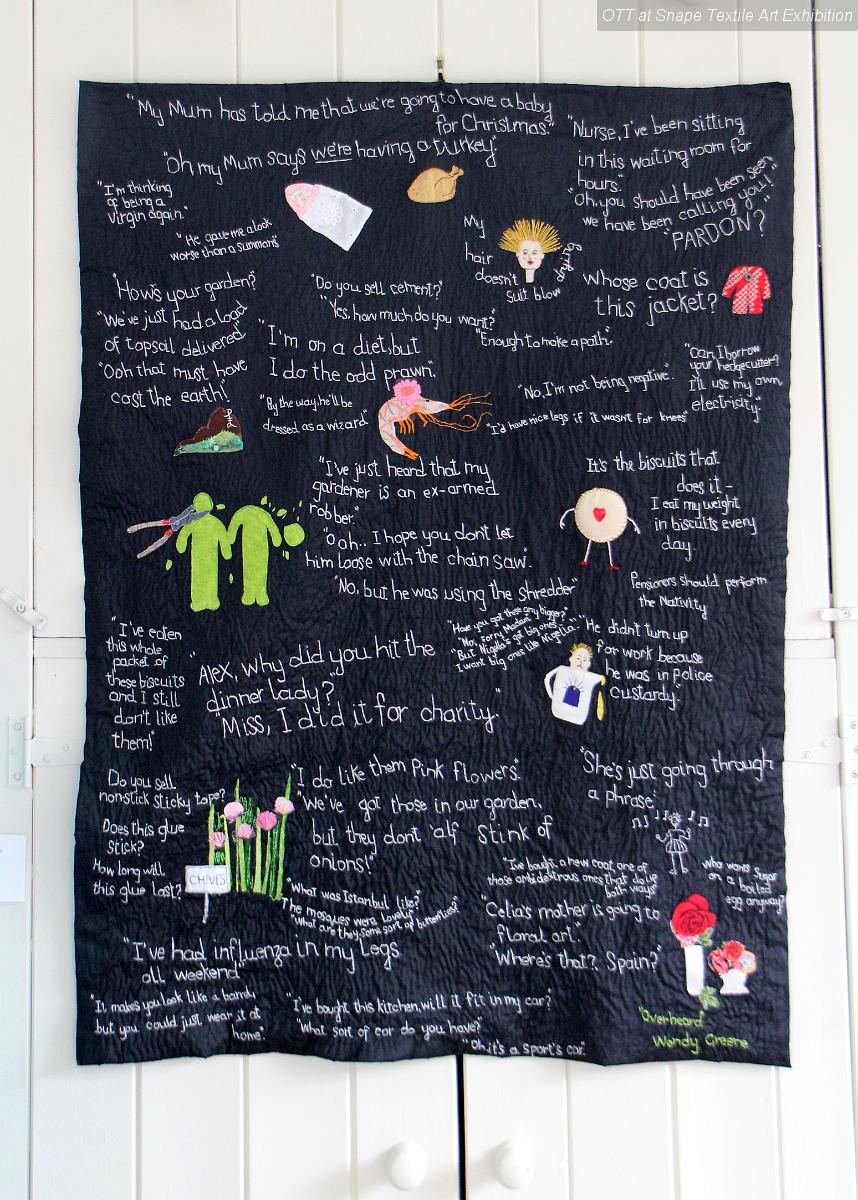 OTT at Snape Textile Art Exhibition
"My Mum has told me that we're going to have a baby
for Christmas."
"Oh my Mum says we're having a turkey"
"Nurse, I've been sitting
in this waiting room for
hours."
"Oh, you should have been seen
we have been calling you!"
"PARDON?"
"I'm thinking
of being a
virgin again."
"He gave me a look
worse than a summons"
My
hair
doesn't
suit blow
drying
Whose coat is
this jacket?
"How's your garden?"
"We've just had a load
of topsoil delivered"
"Ooh that must have
cost the earth!"
"Do you sell cement?"
"Yes, how much do you want?"
"Enough to make a path."
"I'm on a diet, but
I do the odd prawn."
"By the way, he'll be
dressed as a wizard"
"No, I'm not being negative."
"Can I borrow
your hedgecutter?
I'll use my own
electricity."
"I'd have nice legs if it wasn't for knees"
"I've just heard that my
gardener is an ex-armed
robber."
"Ooh.. I hope you don't let
him loose with the chain saw".
"No, but he was using the shredder"
It's the biscuits that
does it -
I eat my weight
in biscuits every
day.
Pensioners should perform
the Nativity
"I've eaten
this whole
packet of
these biscuits
and I still
don't like
them!"
"Alex, why did you hit the
dinner lady?"
"Miss, I did it for charity."
"Have you got these any bigger?"
"No, sorry Madam"
"But Nigella's got big ones...
I want big ones like Nigella."
"He didn't turn up
for work because
he was in police
custardy."
Do you sell
non-stick sticky tape?
Does this glue
stick?
How long will
this glue last?
CHIVES
"I do like them pink flowers."
"We've got those in our garden,
but they don't 'alf stink of
onions!"
"She's just going through
a phrase"
"I've bought a new coat, one of
those ambidextrous ones that do up
both ways"
Who wants sugar
on a boiled
egg anyway?
"What was Istanbul like?"
The mosques were lovely"
"What are they, some sort of butterflies?"
"Celia's mother is going to
floral art."
"Where's that? Spain?"
"I've had influenza in my legs
all weekend"
"It makes you look like a
but you could just wear it at
home."
"I've bought this kitchen, will it fit in my car?
"What sort of car do you have?"
"Oh, it's a sport's car."
"Overheard"
Wendy Greene